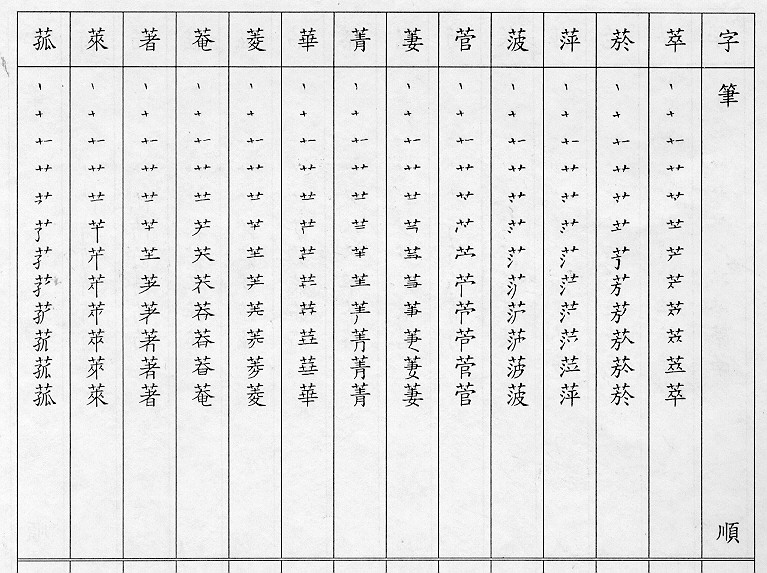 字 萃 菸 萍 菠 菅 萋 菁 華 菱 菴 著 萊 菰
筆順
萃
菸
萍
菠
菅
萋
菁
華
菱
菴
著
萊
菰